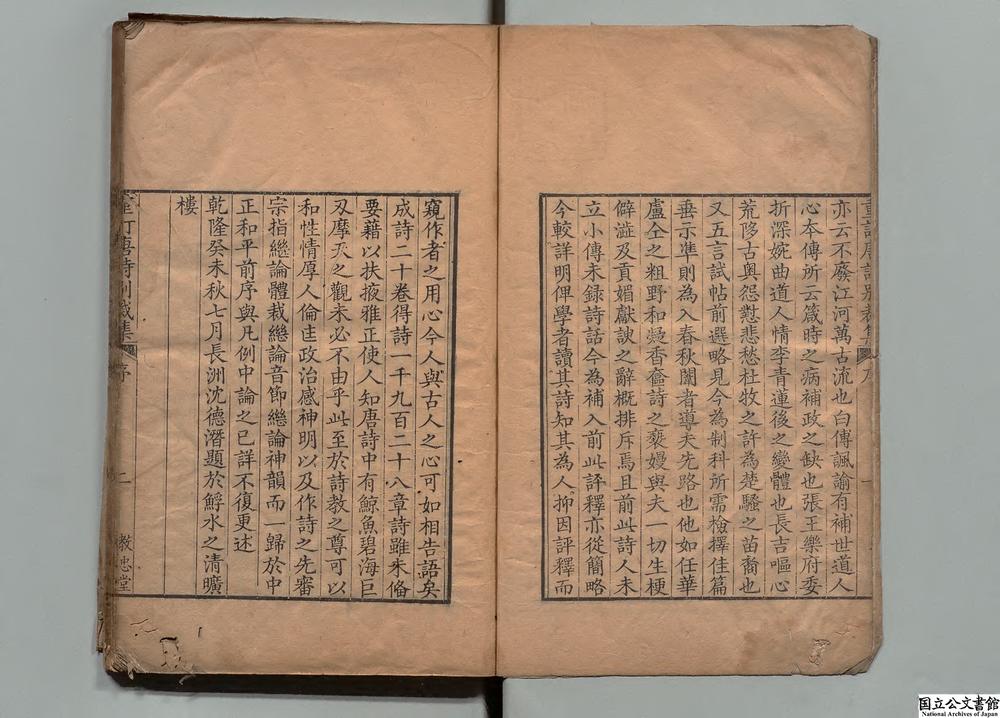 重訂唐詩別裁集 序
亦云不廢江河萬古流也白傅諷諭有補世道人
心本傳所云箴時之病補政之缺也張王樂府委
折深婉曲道人情李青蓮後之變體也長吉嘔心
荒陊古奥怨懟悲愁杜牧之許為楚騷之苗裔也
又五言試帖前選略見今為制科所需檢擇佳篇
垂示準則為入春秋闈者導夫先路也他如任華
盧仝之粗野和凝香奩詩之褻嫚與夫一切生梗
僻澁及貢媚獻諛之辭概排斥焉且前此詩人未
立小傳未録詩話今為補入前此評釋亦從簡略
今較詳明俾學者讀其詩知其為人抑因評釋而
窺作者之用心今人與古人之心可如相告語矣
成詩二十卷得詩一千九百二十八章詩雖未俻
要藉以扶掖雅正使人知唐詩中有鯨魚碧海巨
刄摩天之觀未必不由乎此至於詩教之尊可以
和性情厚人倫匡政治感神明以及作詩之先審
宗指繼論體裁繼論音節繼論神韻而一歸於中
正和平前序與凡例中論之已詳不復更述
乾隆癸未秋七月長洲沈德潛題於鬵水之清曠
樓
重訂唐詩別裁集 序 二 教忠堂
国立公文書館
National Archives of Japan